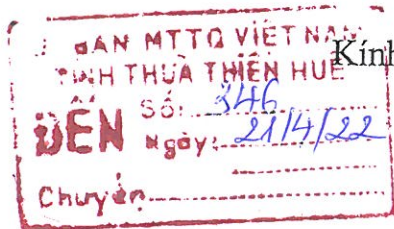 BAN MTTQ VIỆT NAM
TỈNH THỪA THIÊN HUẾ
Kính
ĐẾN
Số: 346
Ngày: 21/4/22
Chuyển